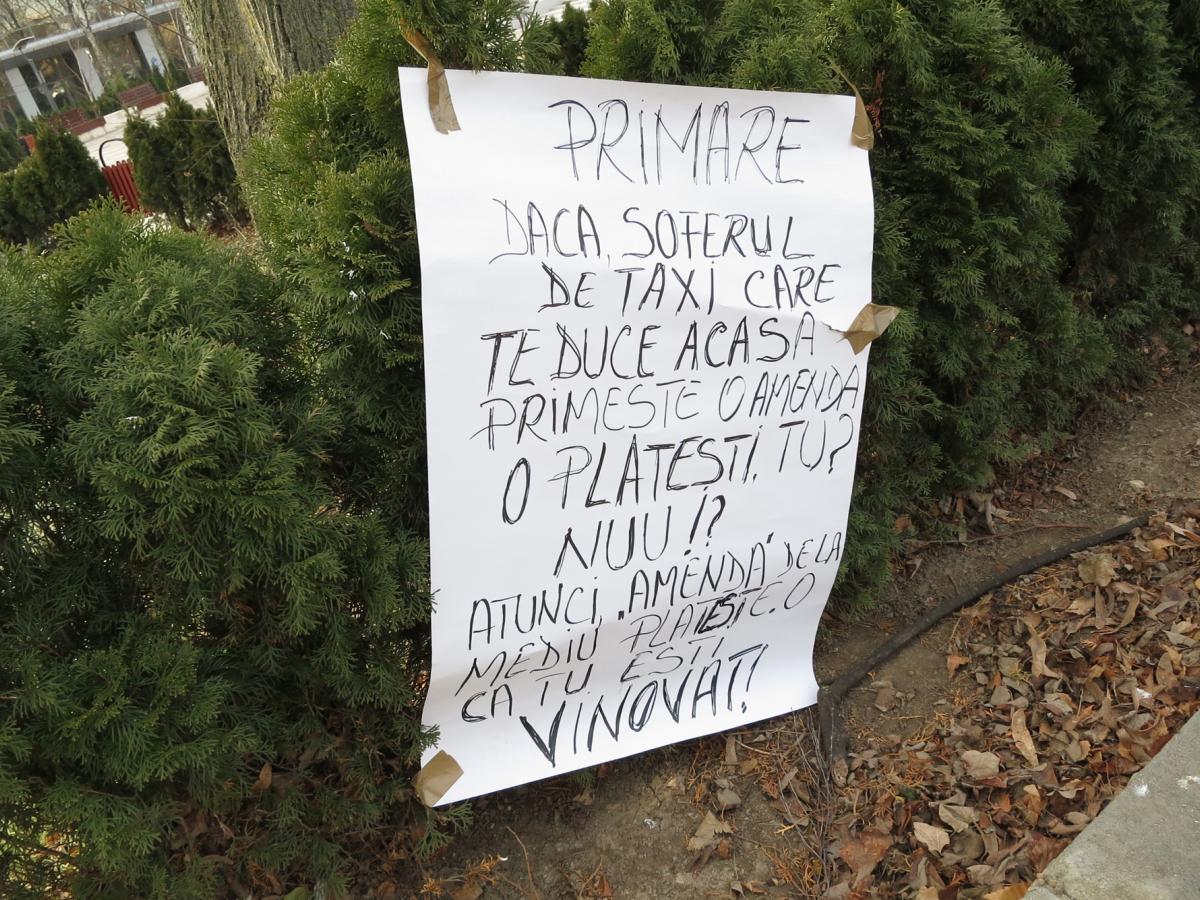 PRIMARE
DACA, SOFERUL
DE TAXI CARE
TE DUCE ACASA
PRIMESTE O AMENDA
O PLATEȘTI, TU?
NUU!?
ATUNCI, „AMENDA" DE LA
MEDIU PLATESTE.O
CA TU ESTI
VINOVAT!